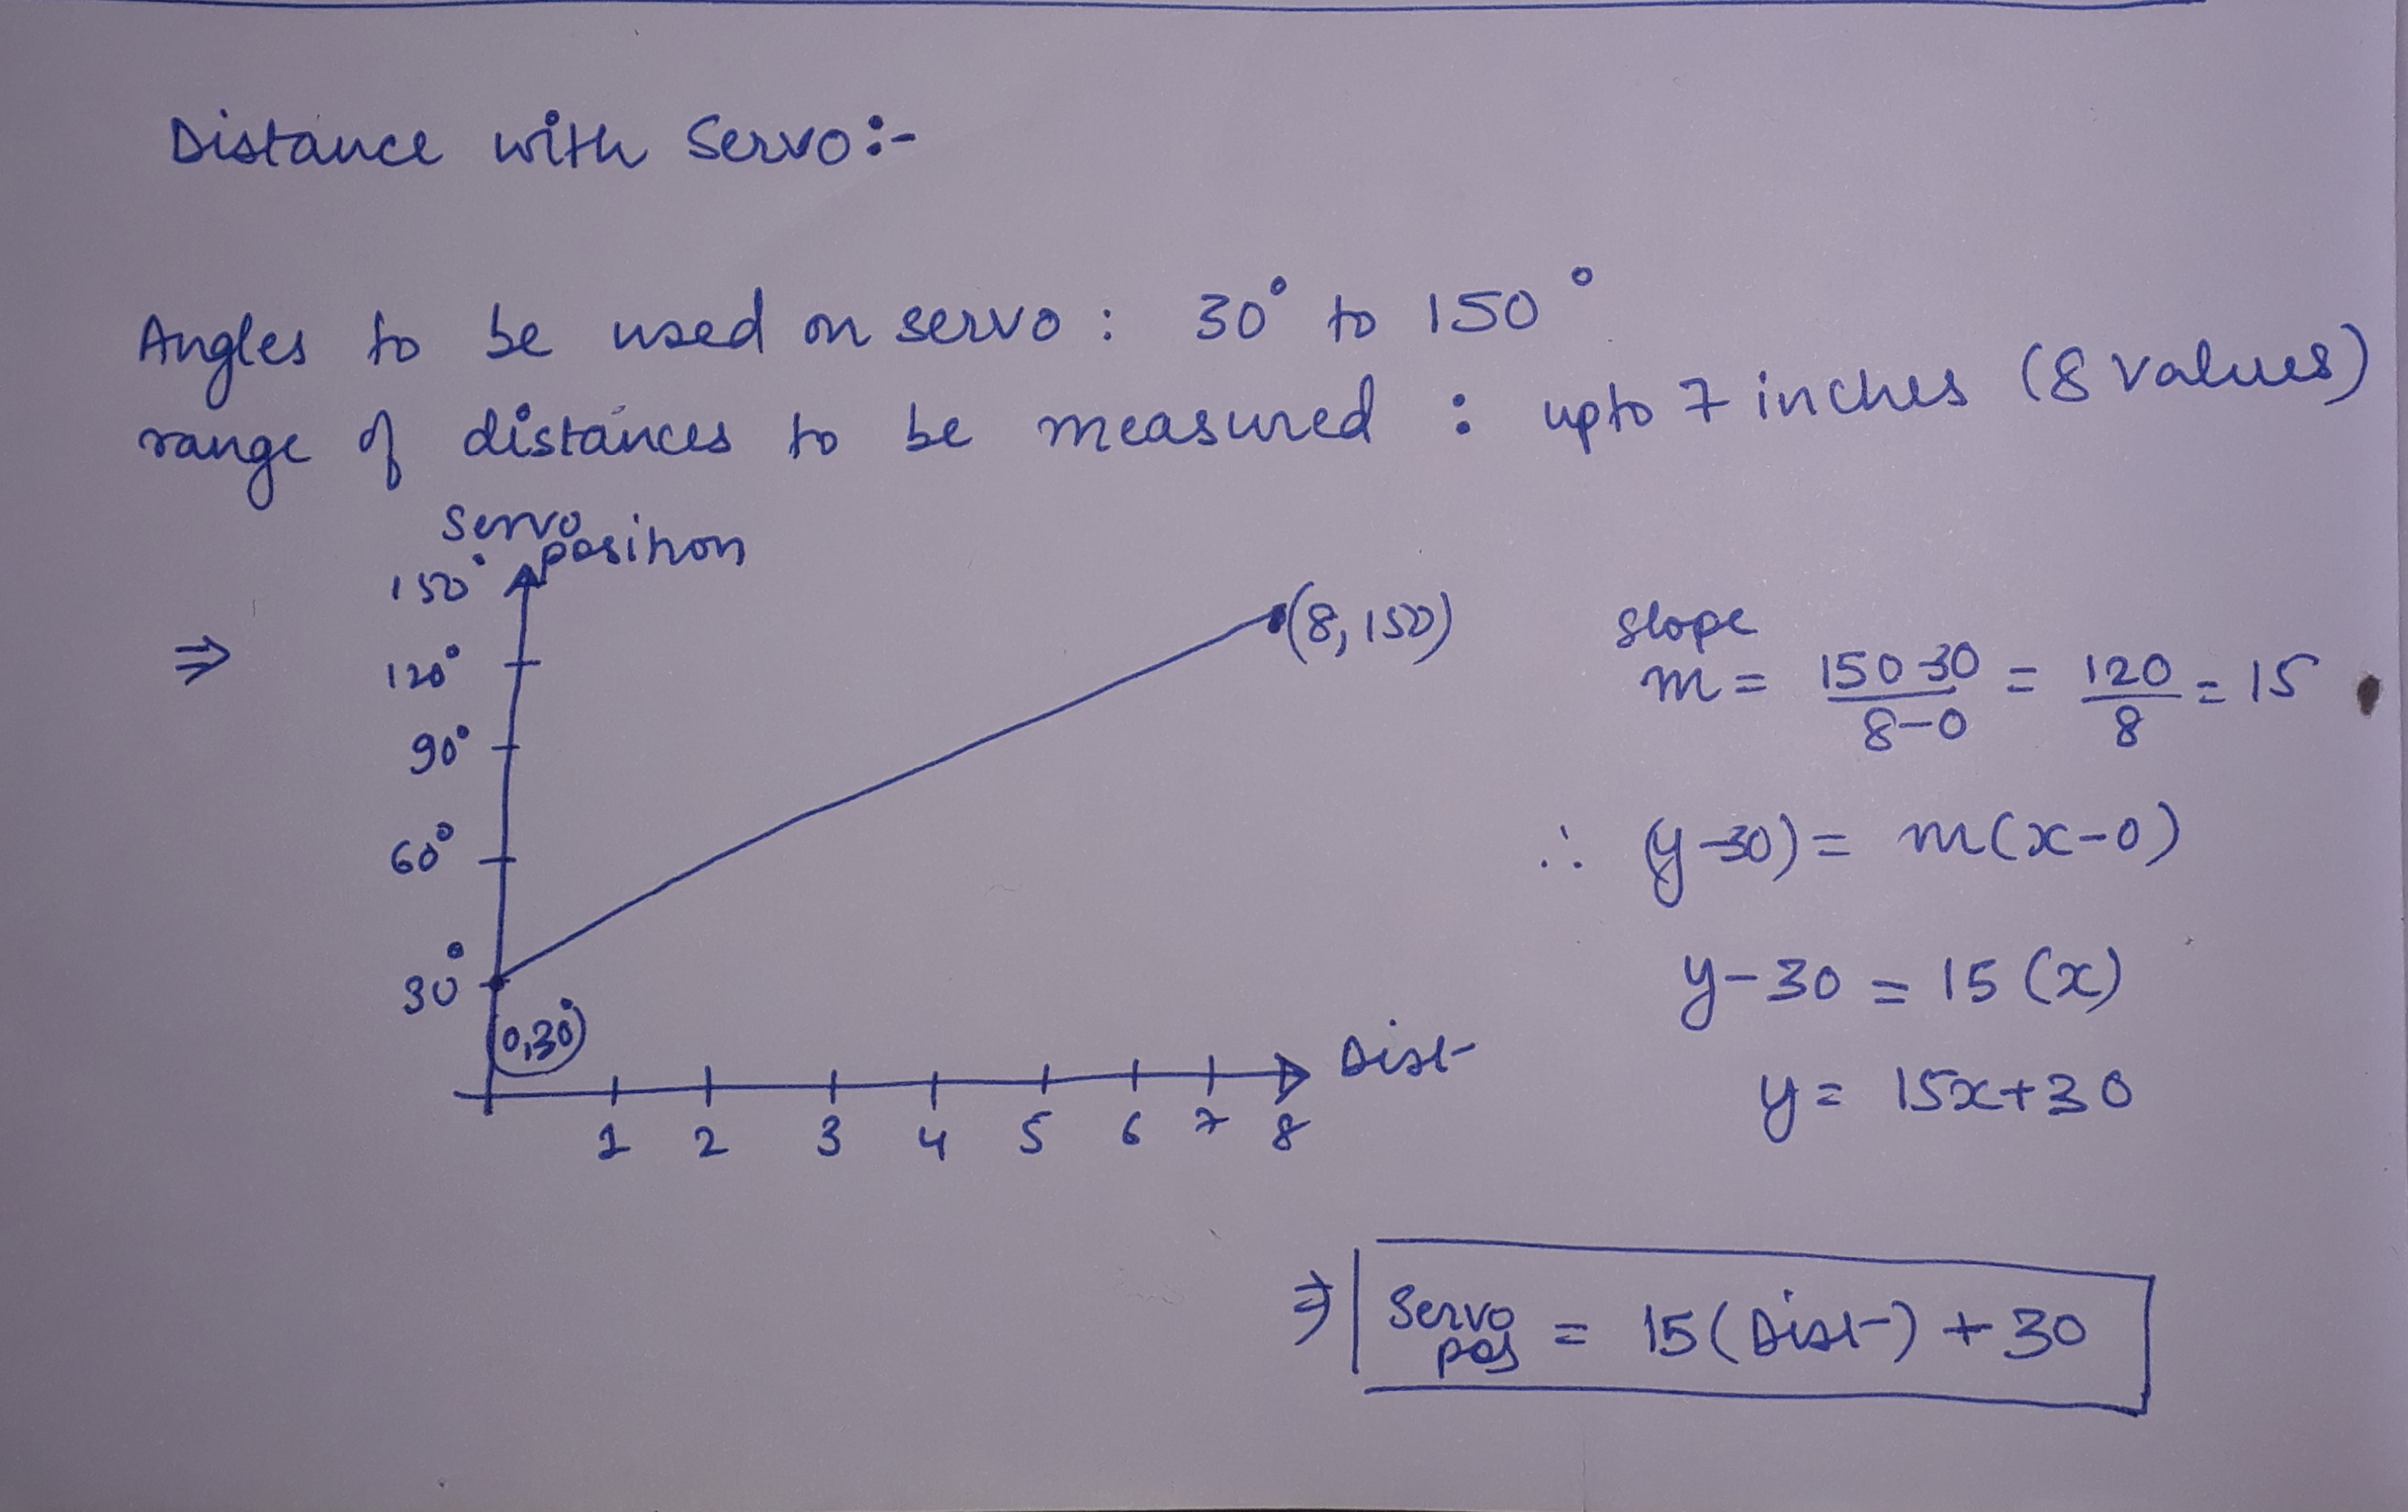 Distance with Servo:-
Angles to be used on servo : 30° to 150°
range of distances to be measured : upto 7 inches (8 values)
Servo
position
150°
120°
90°
60°
30°
(0,30°)
(8,150)
1 2 3 4 5 6 7 8
Dist
⇒
slope
m = 150-30/8-0 = 120/8 = 15
∴ (y-30) = m(x-0)
y-30 = 15(x)
y = 15x+30
⇒ Servo pos = 15(Dist) + 30